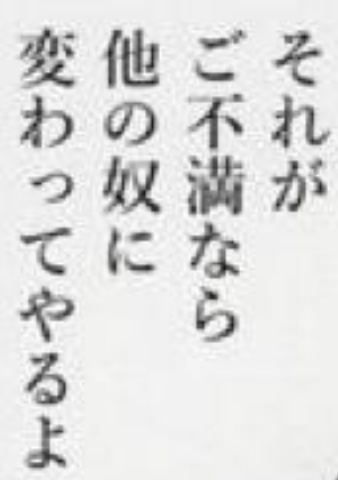 それが
ご不満なら
他の奴に
変わってやるよ